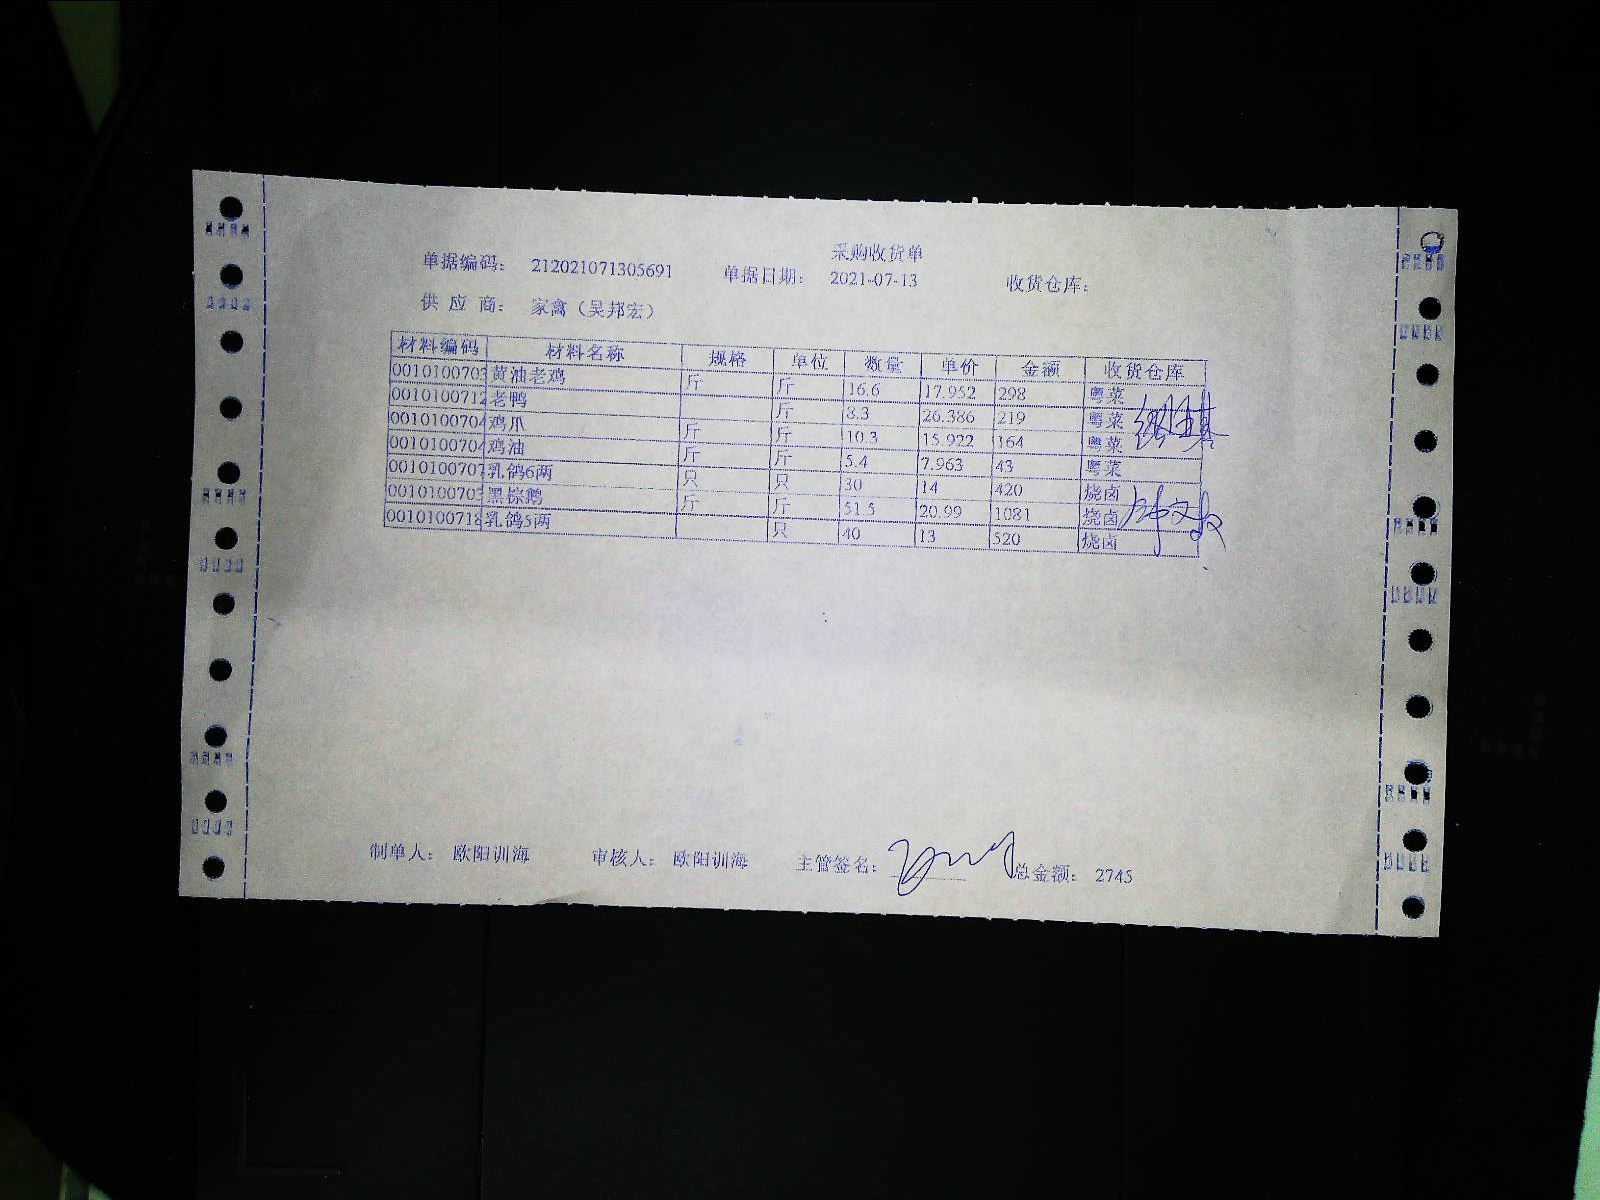 采购收货单
单据编码： 212021071305691 单据日期： 2021-07-13 收货仓库：
供 应 商： 家禽（吴邦宏）
材料编码 材料名称 规格 单位 数量 单价 金额 收货仓库
0010100703 黄油老鸡 斤 斤 16.6 17.952 298 粤菜
0010100712 老鸭 斤 8.3 26.386 219 粤菜
0010100704 鸡爪 斤 斤 10.3 15.922 164 粤菜
0010100704 鸡油 斤 斤 5.4 7.963 43 粤菜
0010100707 乳鸽6两 只 只 30 14 420 烧卤
0010100703 黑棕鹅 斤 斤 51.5 20.99 1081 烧卤
0010100718 乳鸽5两 只 40 13 520 烧卤
制单人： 欧阳训海 审核人： 欧阳训海 主管签名： 总金额： 2745